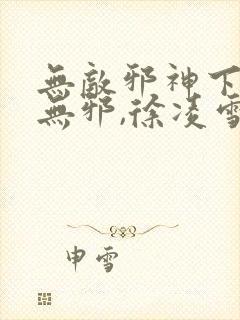 無敵邪神下
無邪,徐凌雪
申雪